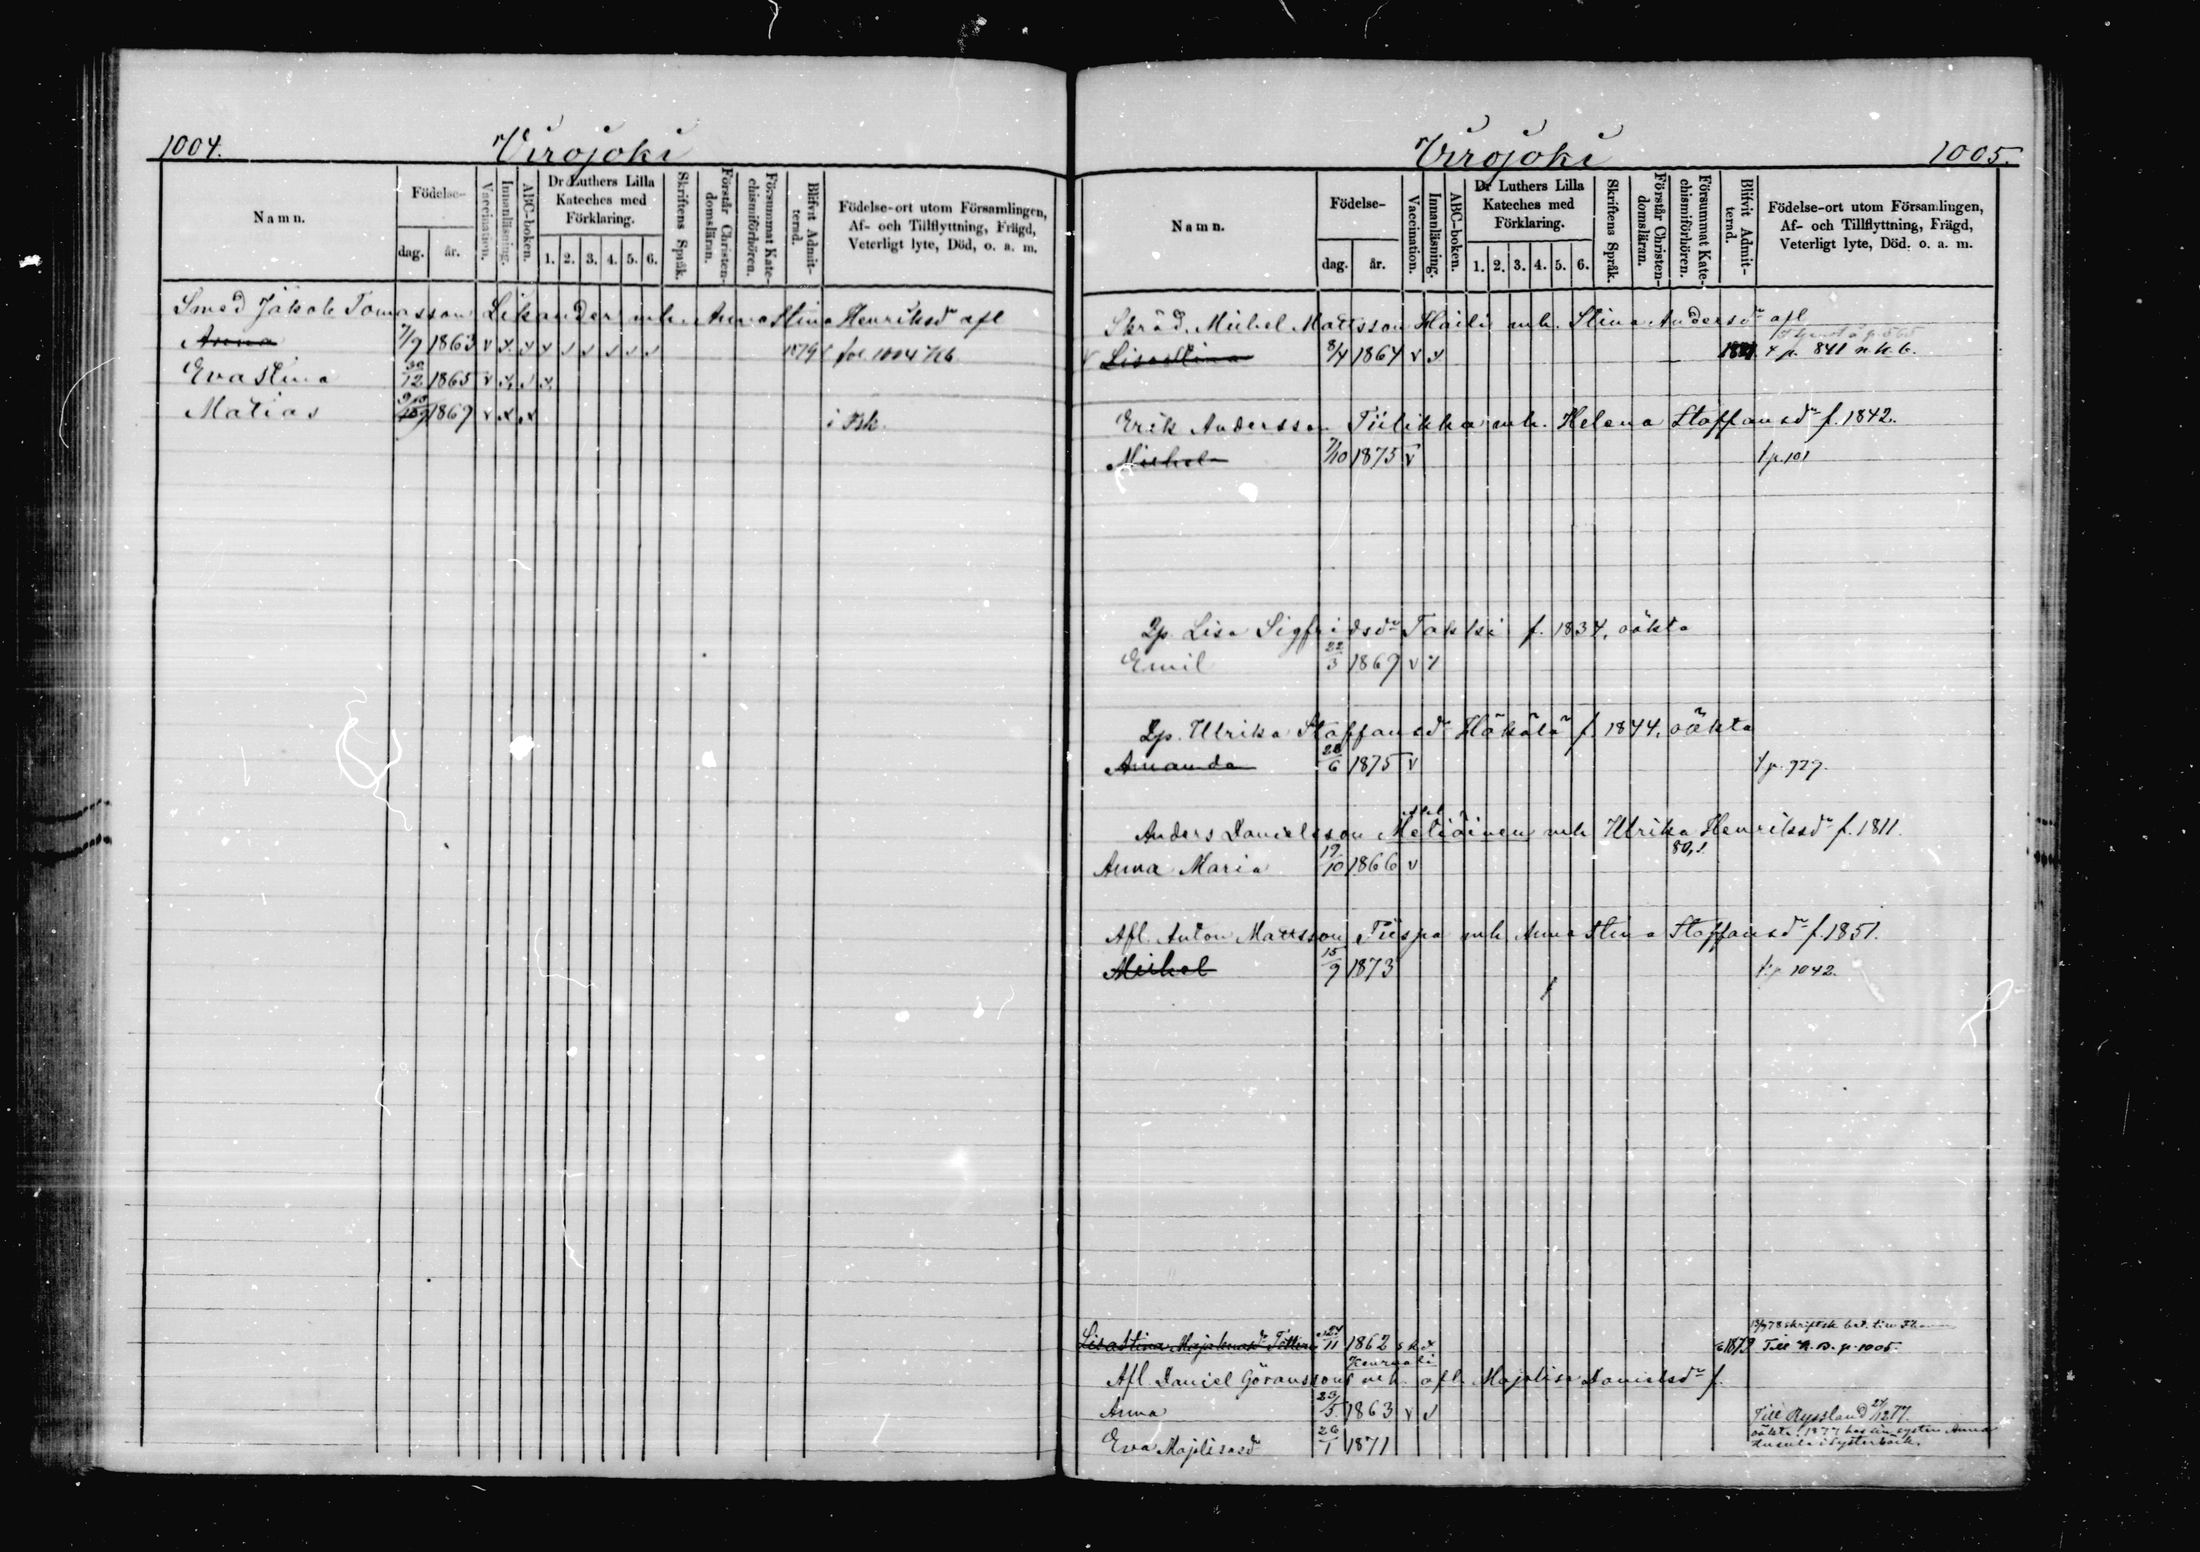 1004. Virojoki
Namn. Födelse- dag. år. Vaccination. Innanläsning. ABC-boken. Dr Luthers Lilla Kateches med Förklaring. 1. 2. 3. 4. 5. 6. Skriftens Språk. Förstår Christendomsläran. Försummat Katechismiförhören. Blifvit Admitterad. Födelse-ort utom Församlingen, Af- och Tillflyttning, Frägd, Veterligt lyte, Död, o. a. m.
Smed Jakob Tomasson Likander mh. Anna Stina Henriksdr afl
Anna 7/9 1863 v x x x 1879 fol. 1004
Eva Stina 30/12 1865 v x x x
Matias 1869 v x x i Bk.
Virojoki 1005.
Namn. Födelse- dag. år. Vaccination. Innanläsning. ABC-boken. Dr Luthers Lilla Kateches med Förklaring. 1. 2. 3. 4. 5. 6. Skriftens Språk. Förstår Christendomsläran. Försummat Katechismiförhören. Blifvit Admitterad. Födelse-ort utom Församlingen, Af- och Tillflyttning, Frägd, Veterligt lyte, Död. o. a. m.
Skräd. Michel Mattsson Haili mh. Stina Andersdr afl
v Lisa Stina 8/4 1864 v x p. 841 n.k.b.
Erik Andersson Tiilikka mh. Helena Staffansdr f. 1842.
Michel 7/10 1875 v t p. 101
Qp. Lisa Sigfridsdr Takki f. 1834, oäkta
Emil 22/3 1869 v x
Qp. Ulrika Staffansdr Häkälä f. 1844. oäkta
Amanda 28/6 1875 v t p. 727.
Anders Danielsson Meliäinen mh Ulrika Henriksdr f. 1811.
80,1
Anna Maria 19/10 1866 v
Afl. Anton Mattsson Tiispa mh Anna Stina Staffansdr f. 1851.
Michel 15/9 1873 t. p 1042.
Lisa Stina 24/11 1862 1879 Till N. B. p. 1005.
Afl. Daniel Göransson mh. afl. Majalisa Danielsdr f.
Anna 23/5 1863 v x Till Ryssland 24/12 77.
Eva Majlisasdr 26/1 1871 oäkta, 1877 hos sin syster Anna
i Systerbäck.